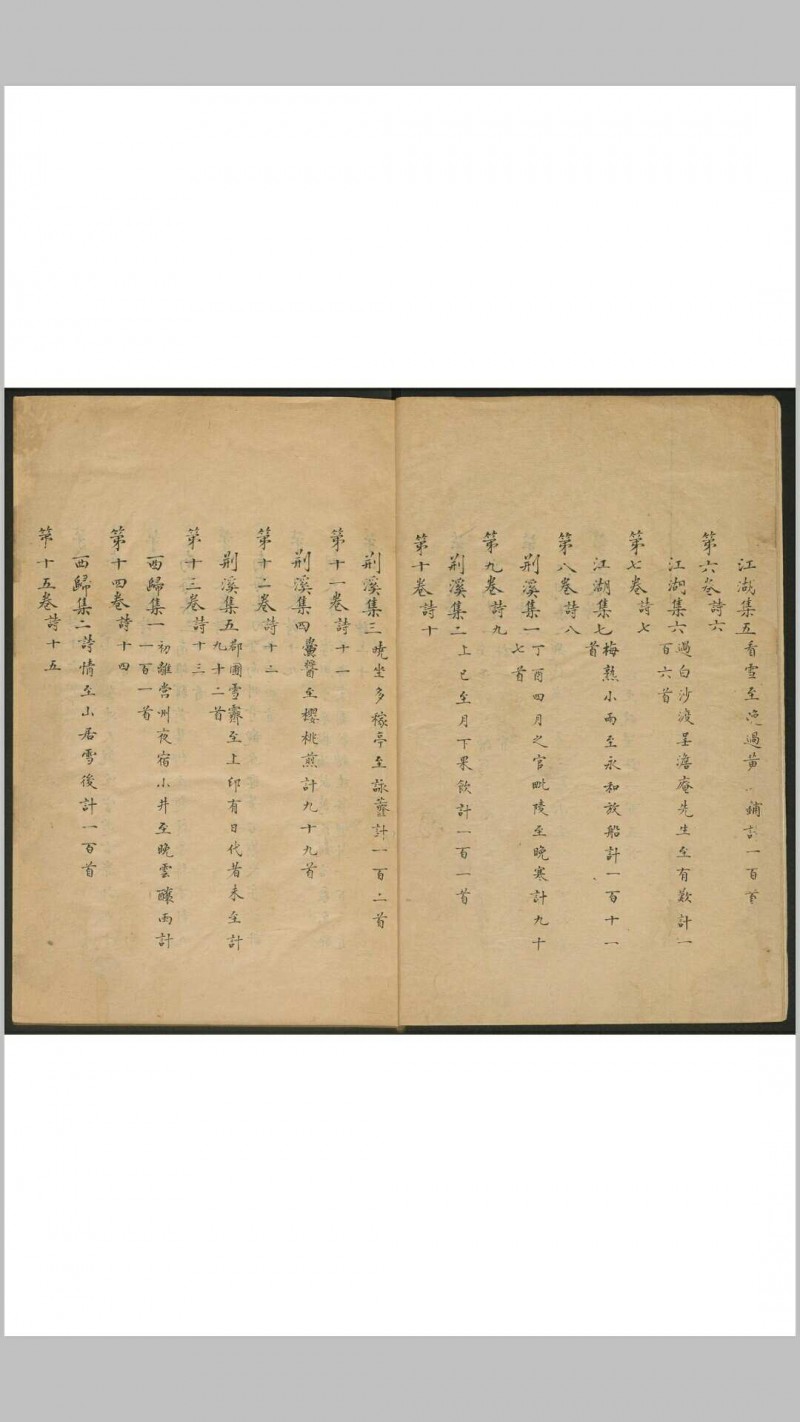 江湖集五看雪至晚過黃 鋪計一百首
第六卷詩六
江湖集六過白沙渡呈澹庵先生至有歎計一
百六首
第七卷詩七
江湖集七梅熟小雨至永和放船計一百十一
首
第八卷詩八
荆溪集一丁酉四月之官毗陵至晚寒計九十
七首
第九卷詩九
荆溪集二上巳至月下果飲計一百一首
第十卷詩十
荆溪集三曉坐多稼亭至詠虀計一百二首
第十一卷詩十一
荆溪集四 至櫻桃煎計九十九首
第十二卷詩十二
荆溪集五郡圃雪霽至上印有日代者未至計
九十二首
第十三卷詩十三
西歸集一初離常州夜宿小井至晚雲釀雨計
一百一首
第十四卷詩十四
西歸集二詩情至山居雪後計一百首
第十五卷詩十五